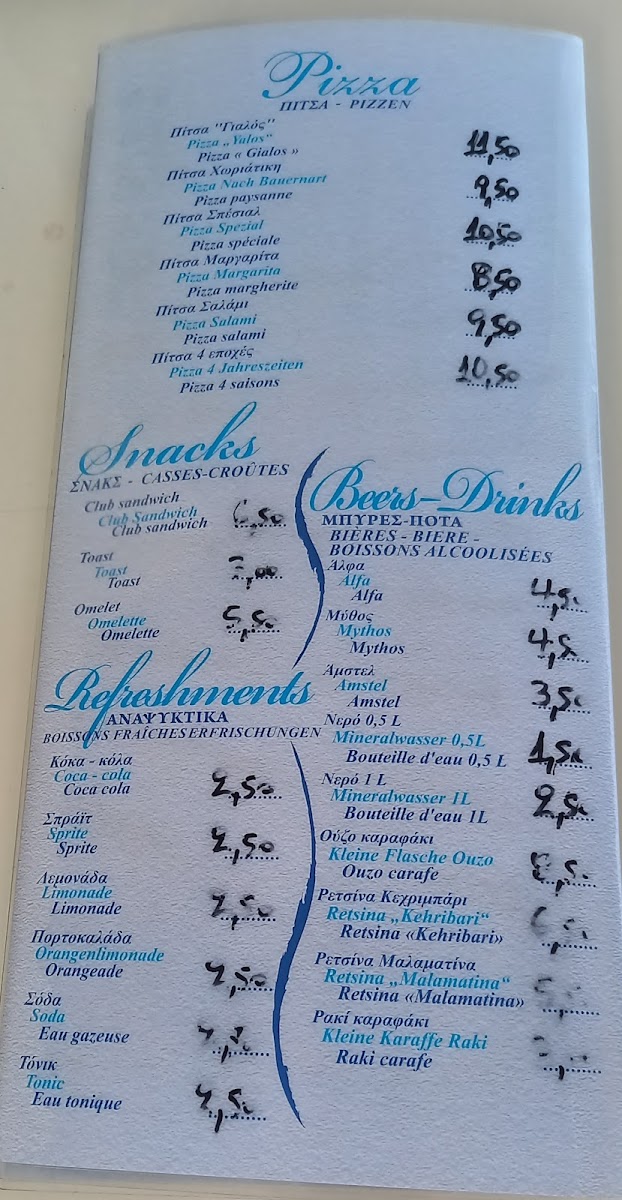 Pizza
ΠΙΤΣΑ - PIZZEN
Πίτσα "Γιαλός"
Pizza „Yalos“
Pizza « Gialos »
11,50
Πίτσα Χωριάτικη
Pizza Nach Bauernart
Pizza paysanne
9,50
Πίτσα Σπέσιαλ
Pizza Spezial
Pizza spéciale
10,50
Πίτσα Μαργαρίτα
Pizza Margarita
Pizza margherite
8,50
Πίτσα Σαλάμι
Pizza Salami
Pizza salami
9,50
Πίτσα 4 εποχές
Pizza 4 Jahreszeiten
Pizza 4 saisons
10,50
Snacks
ΣΝΑΚΣ - CASSES-CROÛTES
Club sandwich
Club Sandwich
Club sandwich
6,50
Toast
Toast
Toast
3,00
Omelet
Omelette
Omelette
5,50
Refreshments
ΑΝΑΨΥΚΤΙΚΑ
BOISSONS FRAÎCHES ERFRISCHUNGEN
Κόκα - κόλα
Coca - cola
Coca cola
2,50
Σπράϊτ
Sprite
Sprite
2,50
Λεμονάδα
Limonade
Limonade
2,50
Πορτοκαλάδα
Orangenlimonade
Orangeade
2,50
Σόδα
Soda
Eau gazeuse
Τόνικ
Tonic
Eau tonique
2,50
Beers-Drinks
ΜΠΥΡΕΣ-ΠΟΤΑ
BIÈRES - BIERE -
BOISSONS ALCOOLISÉES
Άλφα
Alfa
Alfa
4,50
Μύθος
Mythos
Mythos
4,50
Άμστελ
Amstel
Amstel
3,50
Νερό 0,5 L
Mineralwasser 0,5L
Bouteille d'eau 0,5 L
1,50
Νερό 1 L
Mineralwasser 1L
Bouteille d'eau 1L
2,50
Ούζο καραφάκι
Kleine Flasche Ouzo
Ouzo carafe
8,50
Ρετσίνα Κεχριμπάρι
Retsina „Kehribari“
Retsina «Kehribari»
Ρετσίνα Μαλαματίνα
Retsina „Malamatina“
Retsina «Malamatina»
Ρακί καραφάκι
Kleine Karaffe Raki
Raki carafe